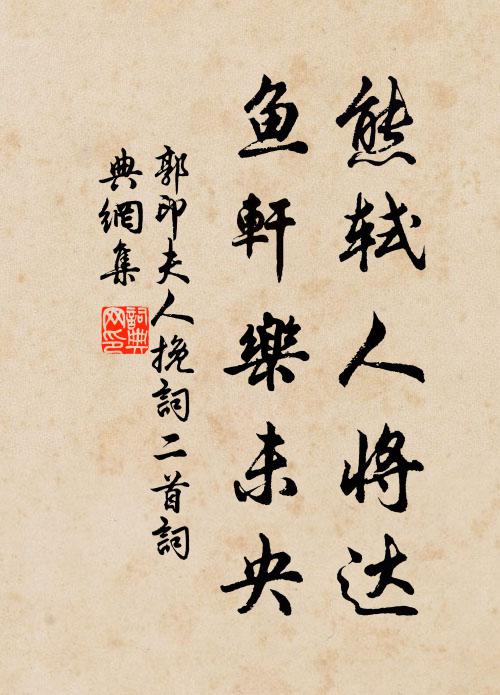 熊轼人将达
鱼軒樂未央
郭印夫人挽詞二首詞
典網集
詞典
网印